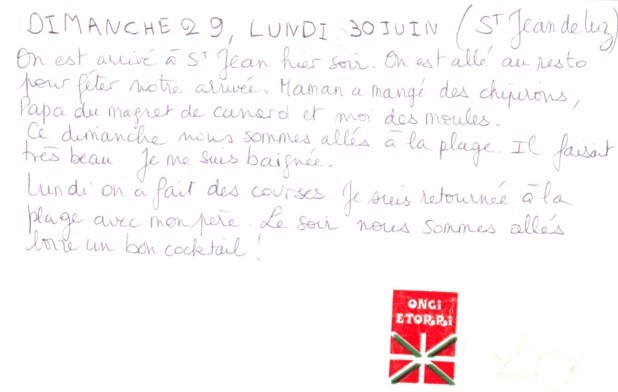 DIMANCHE 29, LUNDI 30 JUIN (ST Jean de luz)
On est arrivé à ST Jean hier soir. On est allé au resto
pour fêter notre arrivée. Maman a mangé des chipirons,
Papa du magret de canard et moi des moules.
Ce dimanche nous sommes allés à la plage. Il faisait
très beau. Je me suis baignée.
Lundi on a fait des courses. Je suis retournée à la
plage avec mon père. Le soir nous sommes allés
boire un bon cocktail !
ONGI
ETORRI